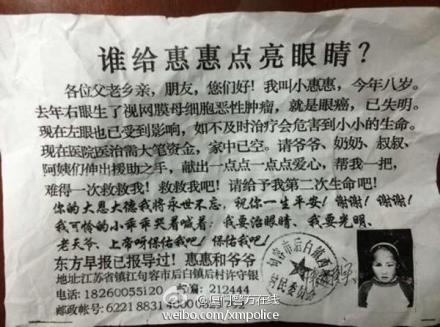 谁给惠惠点亮眼睛？
各位父老乡亲，朋友，您们好！我叫小惠惠，今年八岁。
去年右眼生了视网膜母细胞恶性肿瘤，就是眼癌，已失明。
现在左眼也已受到影响，如不及时治疗会危害到小小的生命。
现在医院医治需大笔资金，家中已空。请爷爷、奶奶、叔叔、
阿姨们伸出援助之手，献出一点点一点点爱心，帮我一把，
难得一次救救我！救救我吧！请给予我第二次生命吧！
你的大恩大德我将永世不忘，祝你一生平安！谢谢！谢谢！
我可怜的小乖乖哭着喊着：我要治眼睛、我要光明、
老天爷、上帝呀保佑我吧！保佑我吧！
东方早报已报导过！惠惠和爷爷
地址:江苏省镇江句容市后白镇后村许守银
电话: 18260055120 邮编: 212444
邮政帐号: 62218831
句容市后白镇西
村民委员会
@厦门警方在线
weibo.com/xmpolice